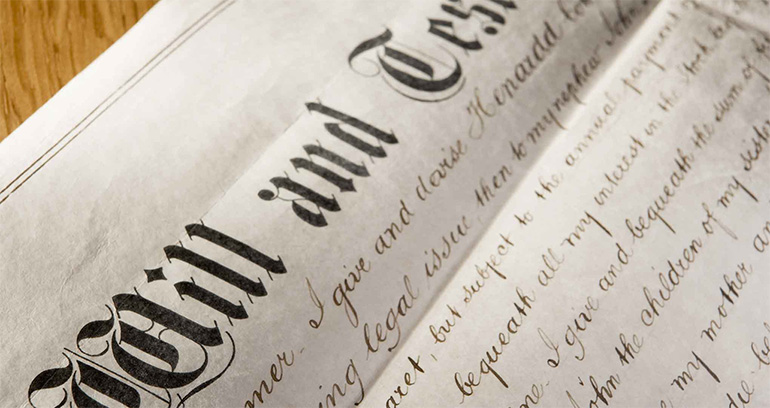 Will and Tes
ner. I give and devise Honardd
ing legal issue, then to my nephew John
aret, but subject to the annual payment
bequeath all my interest in the stock
me. I give and bequeath the sum of
John the children of my sister
my mother an
die be